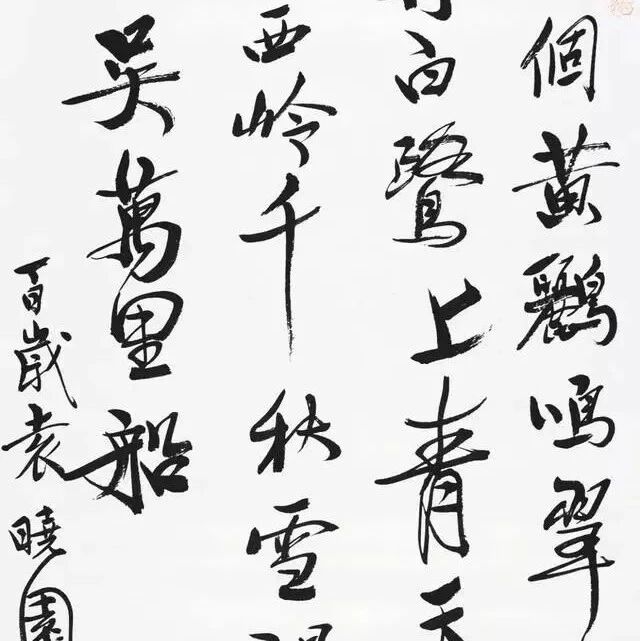 個黄鸝鳴翠
白鷺上青天
西岭千秋雪
吳萬里船
百歲袁曉園